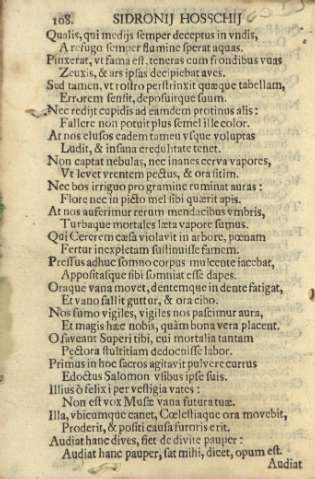 108. SIDRONIJ HOSSCHIJ
Qualis, qui medijs semper deceptus in vndis,
A refugo semper flumine sperat aquas.
Pinxerat, vt fama est, teneras cum frondibus vuas
Zeuxis, & ars ipsas decipiebat aves.
Sed tamen, vt rostro perstrinxit quæque tabellam,
Errorem sensit, deposuitque suum.
Nec redijt cupidis ad eamdem protinus alis:
Fallere non potuit plus semel ille color.
At nos elusos eadem tamen vsque voluptas
Ludit, & insana credulitate tenet.
Non captat nebulas, nec inanes cerva vapores,
Vt levet vrentem pectus, & ora sitim.
Nec bos irriguo pro gramine ruminat auras:
Flore nec in picto mel sibi quærit apis.
At nos auferimur rerum mendacibus vmbris,
Turbaque mortales læta vapore sumus.
Qui Cererem cæsa violavit in arbore, pœnam
Fertur inexpletam sustinuisse famem.
Pressus adhuc somno corpus mulcente iacebat,
Appositasque sibi somniat esse dapes.
Oraque vana movet, dentemque in dente fatigat,
Et vano fallit guttur, & ora cibo.
Nos fumo vigiles, vigiles nos pascimur aura,
Et magis hæc nobis, quàm bona vera placent.
O faveant Superi tibi, cui mortalia tantam
Pectora stultitiam dedocuisse labor.
Primus in hoc sacros agitavit pulvere currus
Edoctus Salomon vsibus ipse suis.
Illius ò felix i per vestigia vates:
Non est vox Musæ vana futura tuæ.
Illa, vbicumque canet, Cœlestiaque ora movebit,
Proderit, & positi causa furoris erit.
Audiat hanc dives, fiet de divite pauper:
Audiat hanc pauper, sat mihi, dicet, opum est.
Audiat